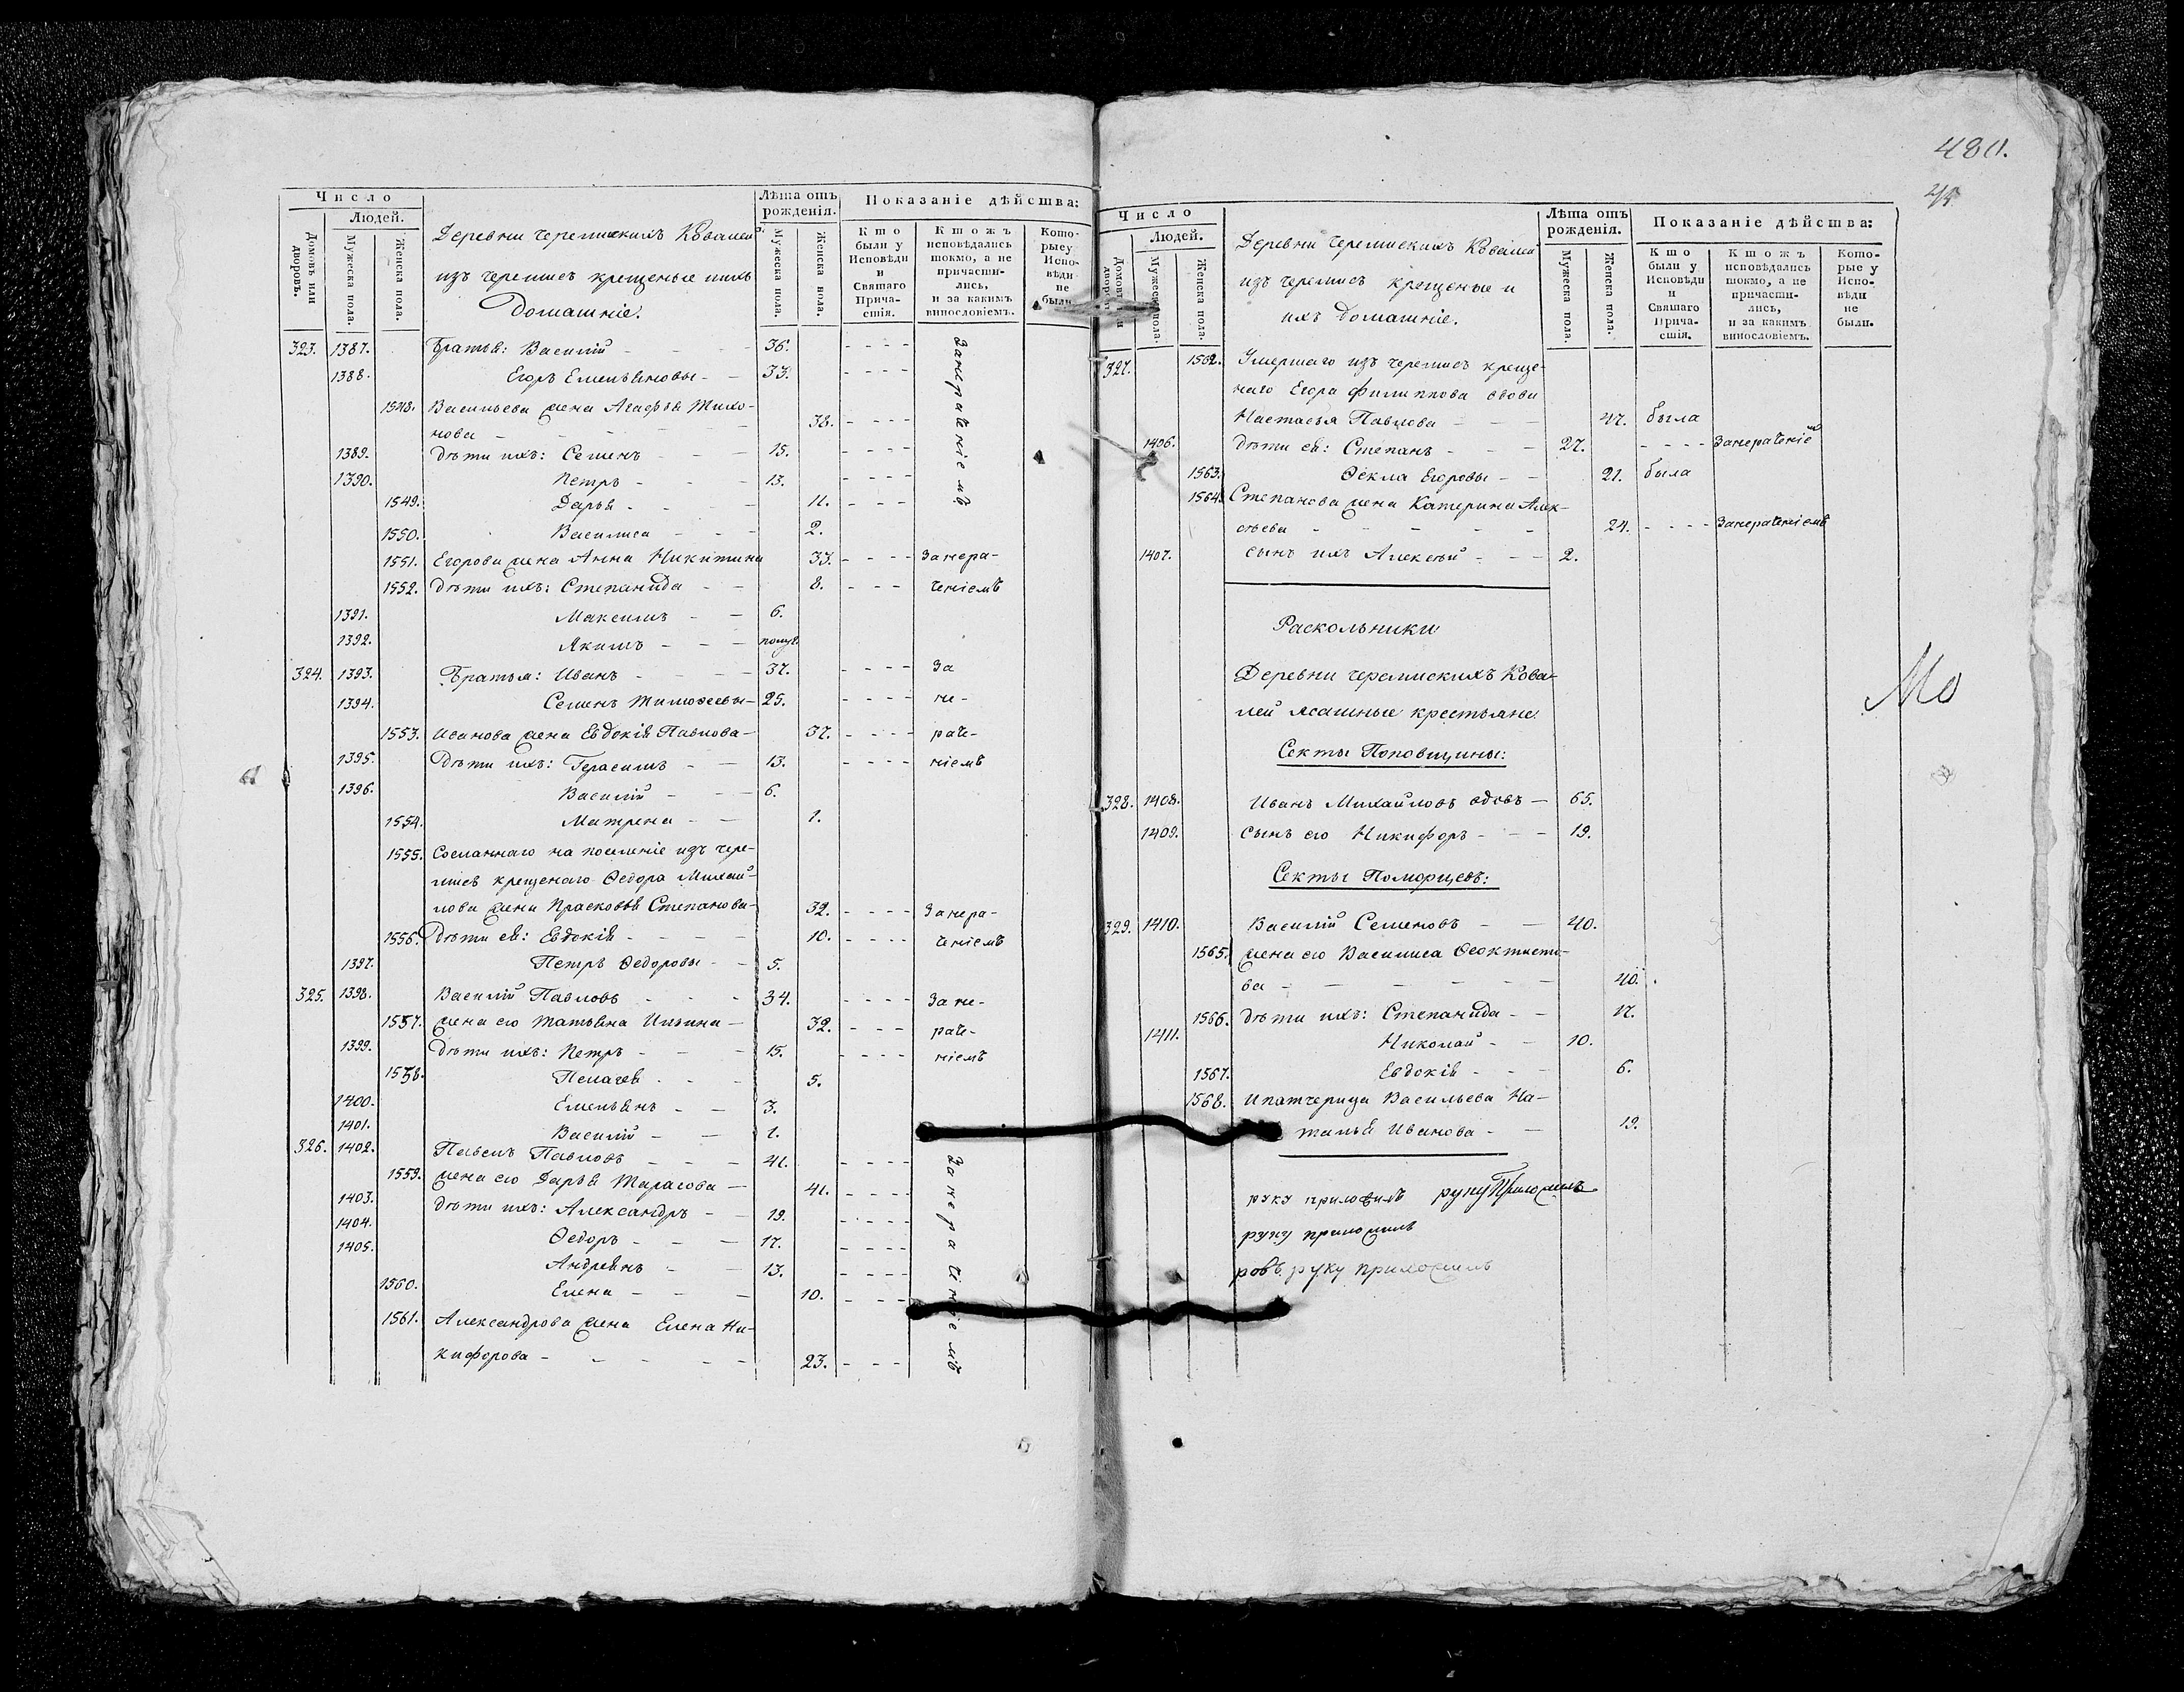 480.
45
Число
Людей.
Домовъ или дворовъ.
Мужеска пола.
Женска пола.
Деревни Черемискихъ Ковалей
изъ черемисъ крещеные ихъ
Домашніе.
Лѣта отъ рожденія.
Мужеска пола.
Женска пола.
Показаніе дѣйства:
Кто были у Исповѣди и Святаго Причастія.
Ктожъ исповѣдались токмо, а не причастились, и за какимъ винословіемъ.
Которые у Исповѣди не были.
323. 1387. Братья: Василій - - - 36. - - - -
Занераченіемъ
1388. Егоръ Емельяновы - - 33. - - - -
1548. Васильева жена Агафья Тихо-
нова - - - 38. - - - -
1389. Дѣти ихъ: Семенъ - - - 15. - - - -
1390. Петръ - - - 13. - - - -
1549. Дарья - - - 11. - - -
1550. Василиса - - - 2.
1551. Егорова жена Анна Никитина 33. - - - - Занера-
1552. Дѣти ихъ: Степанида - - 8. - - - ченіемъ
1391. Максимъ - - 6.
1392. Якимъ - - - полуг.
324. 1393. Братья: Иванъ - - - 37. - - - - За
1394. Семенъ Тимофеевы - 25. - - - - не-
1553. Иванова жена Евдокія Павлова - 37. - - - - раче-
1395. Дѣти ихъ: Герасимъ - - 13. - - - - ніемъ
1396. Василій - - - 6.
1554. Матрена - - 1.
1555. Сосланнаго на поселеніе изъ чере-
мисъ крещенаго Ѳедора Михай-
лова жена Прасковья Степанова - 32. - - - - Занера-
1556. Дѣти ея: Евдокія - - - - 10. - - - - ченіемъ
1397. Петръ Ѳедоровы - - 5.
325. 1398. Василій Павловъ - - - 34. - - - - Зане-
1557. жена его Татьяна Ильина - 32. - - - - раче-
1399. Дѣти ихъ: Петръ - - - 15. - - - - ніемъ
1558. Пелагея - - - 5.
1400. Емельянъ - - 3.
1401. Василій - - 1.
326. 1402. Павелъ Павловъ - - - 41. - - - -
Занераченіемъ
1559. жена его Дарья Тарасова - 41. - - - -
1403. Дѣти ихъ: Александръ - - 19. - - - -
1404. Ѳедоръ - - - 17. - - - -
1405. Андреянъ - - 13. - - - -
1560. Елена - - - 10. - - -
1561. Александрова жена Елена Ни-
кифорова - - - - - 23. - - -
Число
Людей.
Домовъ или дворовъ.
Мужеска пола.
Женска пола.
Деревни Черемискихъ Ковалей
изъ черемисъ крещеные и
ихъ домашніе.
Лѣта отъ рожденія.
Мужеска пола.
Женска пола.
Показаніе дѣйства:
Кто были у Исповѣди и Святаго Причастія.
Ктожъ исповѣдались токмо, а не причастились, и за какимъ винословіемъ.
Которые у Исповѣди не были.
327. 1562. Умершаго изъ черемисъ креще-
наго Егора Филиппова вдова
Настасья Павлова - - - 47. была
1406. Дѣти ея: Степанъ - - - 27. - - - - Занераченіем
1563. Ѳекла Егоровы - - 21. была
1564. Степанова жена Катерина Алек-
сѣева - - - - - 24. - - - - Занераченіемъ
1407. сынъ ихъ Алексѣй - - - 2.
Раскольники
Деревни черемискихъ Кова-
лей ясашные крестьяне
Секты Поповщины:
328. 1408. Иванъ Михайловъ вдовъ - 65.
1409. сынъ его Никифоръ - - - 19.
Секты Поморцевъ:
329. 1410. Василій Семеновъ - - 40.
1565. жена его Василиса Ѳеоктисто-
ва - - - - - 40.
1566. Дѣти ихъ: Степанида - - 17.
1411. Николай - - 10.
1567. Евдокія - - - 6.
1568. Ипатчерица Васильева На-
талья Иванова - - 19.
руку приложилъ руку Приложилъ
руку приложилъ
ровъ руку приложилъ
Мо